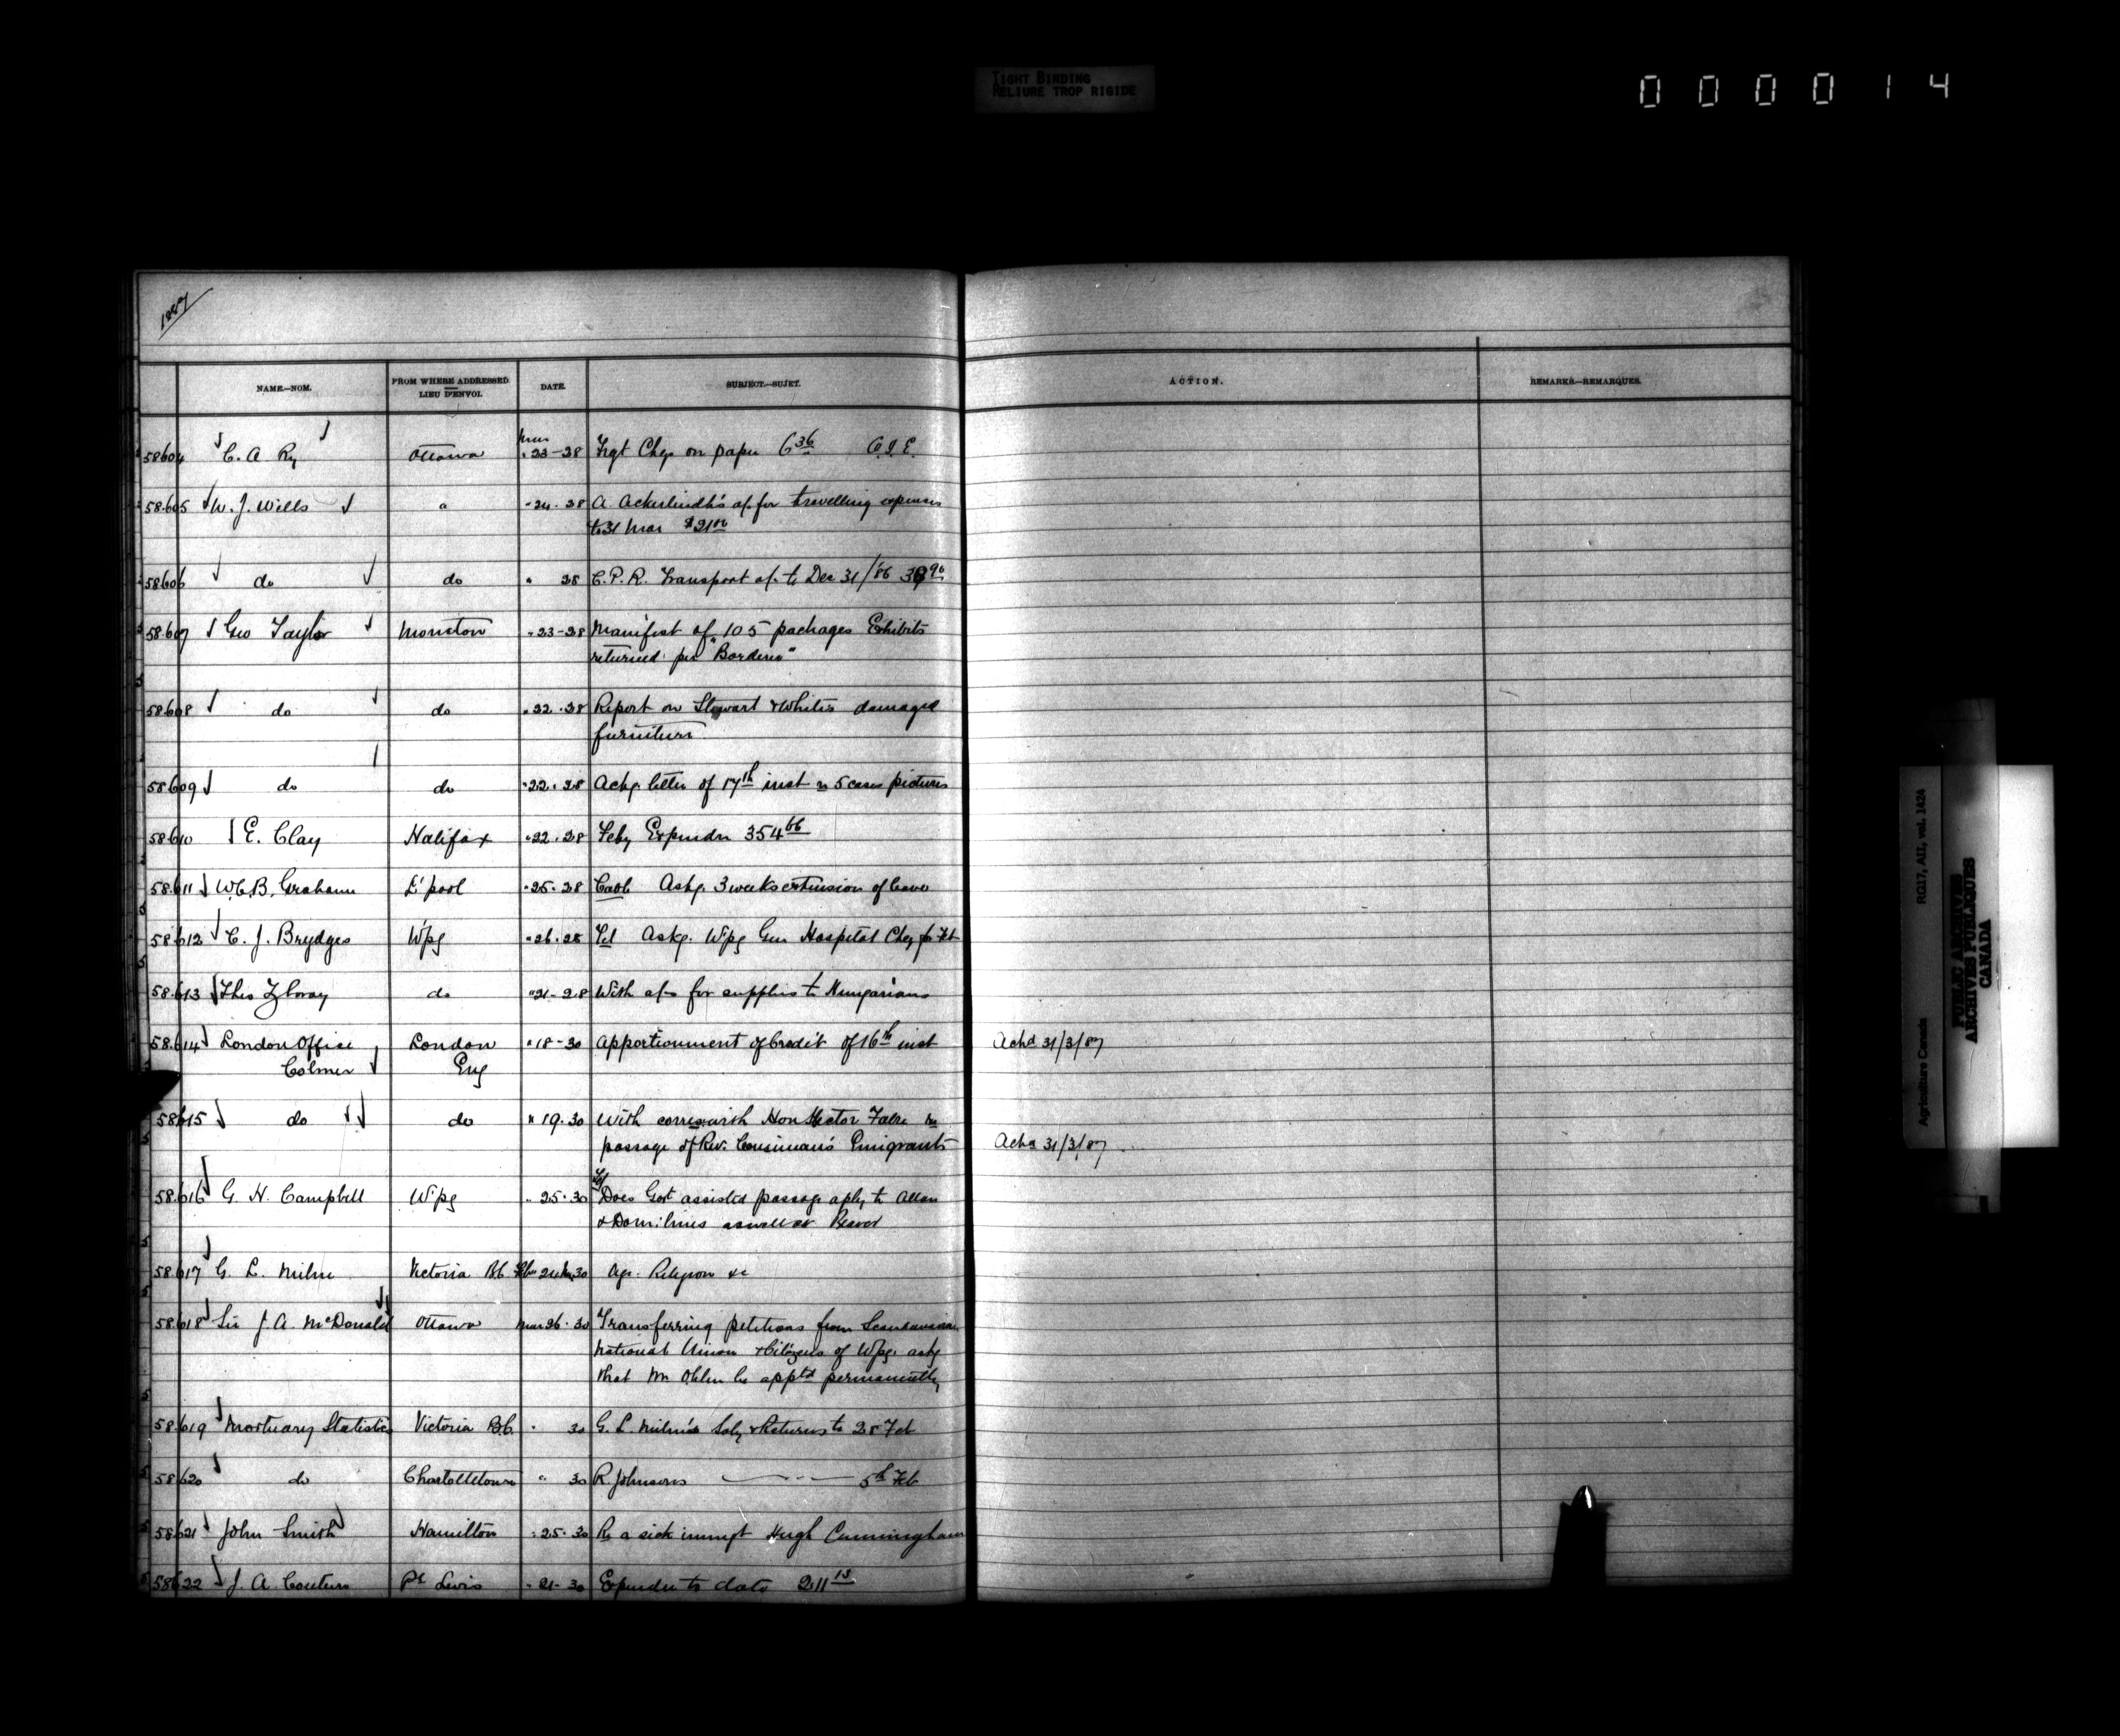 TIGHT BINDING
RELIURE TROP RIGIDE
0 0 0 0 1 4
1887
NAME.—NOM.
FROM WHERE ADDRESSED
LIEU D'ENVOI.
DATE.
SUBJECT.—SUJET.
ACTION.
REMARKS—REMARQUES.
58604 C. A. Ry Ottawa Mar 23-28 Frgt Chgs on paper 6 36 C.I.E.
58605 W. J. Wills " " 24. 28 A. Ackerlindh's a/c for travelling expenses
to 31 Mar $21 00
58606 do do " 28 C.P.R. Transport a/c to Dec 31/86
58607 Geo Taylor Moncton " 23-28 Manifest of 105 packages Exhibits
returned per
58608 do do " 22. 28 Report on Stewart & White's damaged
furniture
58609 do do " 22. 28 Ackg. letter of 17th inst re 5 cases pictures
58610 E. Clay Halifax " 22. 28 Feby Expendre 354 66
58611 W.C.B. Grahame L'pool " 25. 28 Cable Askg. 3 weeks extension of leave
58612 C. J. Brydges W'pg " 26. 28 Tel Askg. W'pg Gen Hospital Chq for Feb
58613 Theo Zboray do " 21-28 With a/cs for supplies to Hungarians
58614 London Office London " 18-30 Apportionment of Credit of 16th inst Ackd 31/3/87
Colmer Eng
58615 do do " 19. 30 With corres. with Hon Hector Fabre re
passage of Rev. Emigrants Ackd 31/3/87
58616 G. H. Campbell W'pg " 25. 30 Tel Does Govt assisted passage apply to Allan
& Dom. lines as well as Beaver
58617 G. L. Milne Victoria B.C. Feb 24 Mar 30 Age. Religion &c
58618 Sir J. A. McDonald Ottawa Mar 26. 30 Transferring petitions from Scandinavian
National Union & Citizens of W'pg. askg
that Mr Ohlen be apptd permanently
58619 Mortuary Statistics Victoria B.C. " 30 G. L. Milne's Saly & Returns to 28 Feb
58620 do Charlottetown " 30 R. Johnsons — " — 5th Feb
58621 John Smith Hamilton " 25. 30 Re a sick immgt Hugh Cunningham
58622 J. A. Couture Pt Levis " 21-30 Expendre to date 211 13
Agriculture Canada RG17, AII, vol. 1424
PUBLIC ARCHIVES
ARCHIVES PUBLIQUES
CANADA